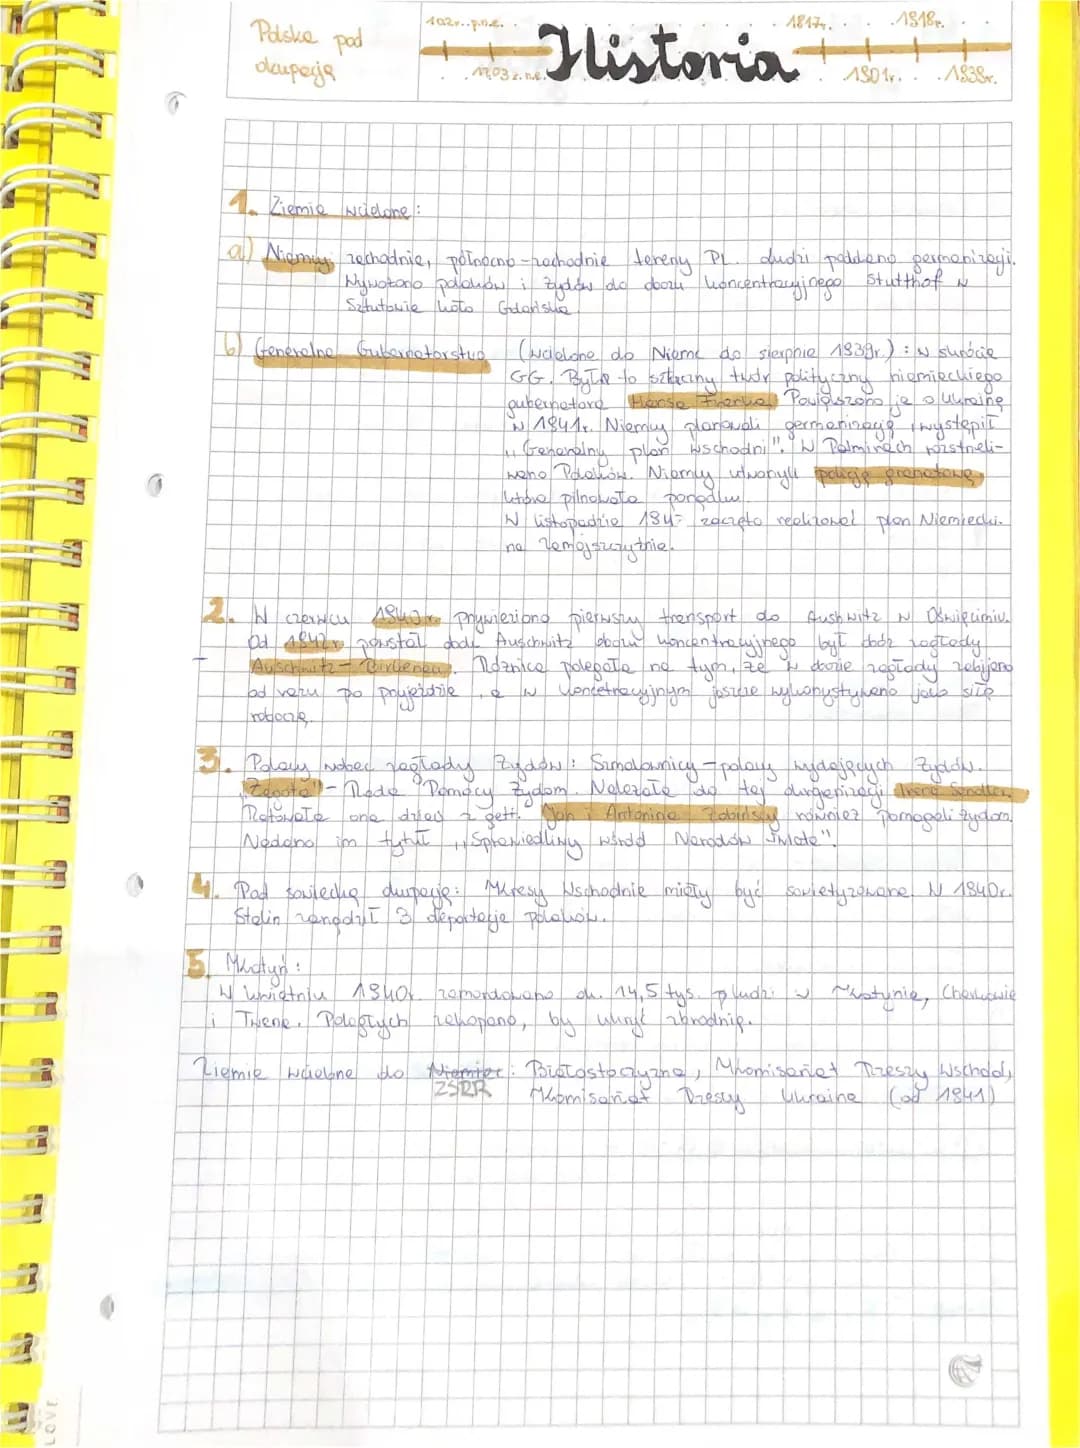 Polska pod
okupacją
102r..p.n.e.
1703 r. n.e.
Historia
1817r.
1918r.
1901r.
1939r.
1. Ziemie wcielone:
a) Niemcy zachodnie, północno-zachodnie tereny PL. Ludzi poddano germanizacji.
Wywożono polaków i żydów do obozu koncentracyjnego Stutthof w
Sztutowie koło Gdańska.
b) Generalne Gubernatorstwo (wcielone do Niemc do sierpnia 1939r.): w skrócie
GG. Był to sztuczny twór polityczny niemieckiego
gubernatora Hansa Franka. Powiększono je o Ukrainę
w 1941r. Niemcy planowali germanizację i wystąpił
,,Generalny plan wschodni". W Palmirach rozstrzeli-
wano Polaków. Niemcy utworzyli policję granatową,
która pilnowała porządku.
W listopadzie 194 zaczęto realizować plan Niemiecki.
na zamojszczyźnie.
2. W czerwcu 1940r. przywieziono pierwszy transport do Aushwitz w Oświęcimiu.
Od 1942r. powstał obok Auschwitz obozu koncentracyjnego był obóz zagłady
Auschwitz - Birkenau. Różnica polegała na tym, że w obozie zagłady zabijano
od razu po przyjeździe, a w koncetracyjnym jeszcze wykorzystywano jako siłę
roboczą.
3. Polacy wobec zagłady Żydów: Szmalcownicy - polacy wydających Żydów.
"Żegota" - Rada Pomocy Żydom. Należała do tej organizacji Irena Sendler.
Ratowała ona dzieci z gett. Jan i Antonina Żabińscy również pomagali żydom.
Nadano im tytuł ,,Sprawiedliwy wśród Narodów Świata".
4. Pod sowiecką okupacją: Kresy Wschodnie miały być sowietyzowane. W 1940r.
Stalin zarządził 3 deportacje polaków.
5. Katyń:
W kwietniu 1940r. zamordowano ok. 14,5 tys. ludzi w Katyniu, Charkowie
i Twerze. Poległych zakopano, by ukryć zbrodnię.
Ziemie wcielone do Niemiec: Białostocczyzna, Komisariat Rzeszy Wschód,
ZSRR Komisariat Rzeszy Ukraina (od 1941)
LOVE